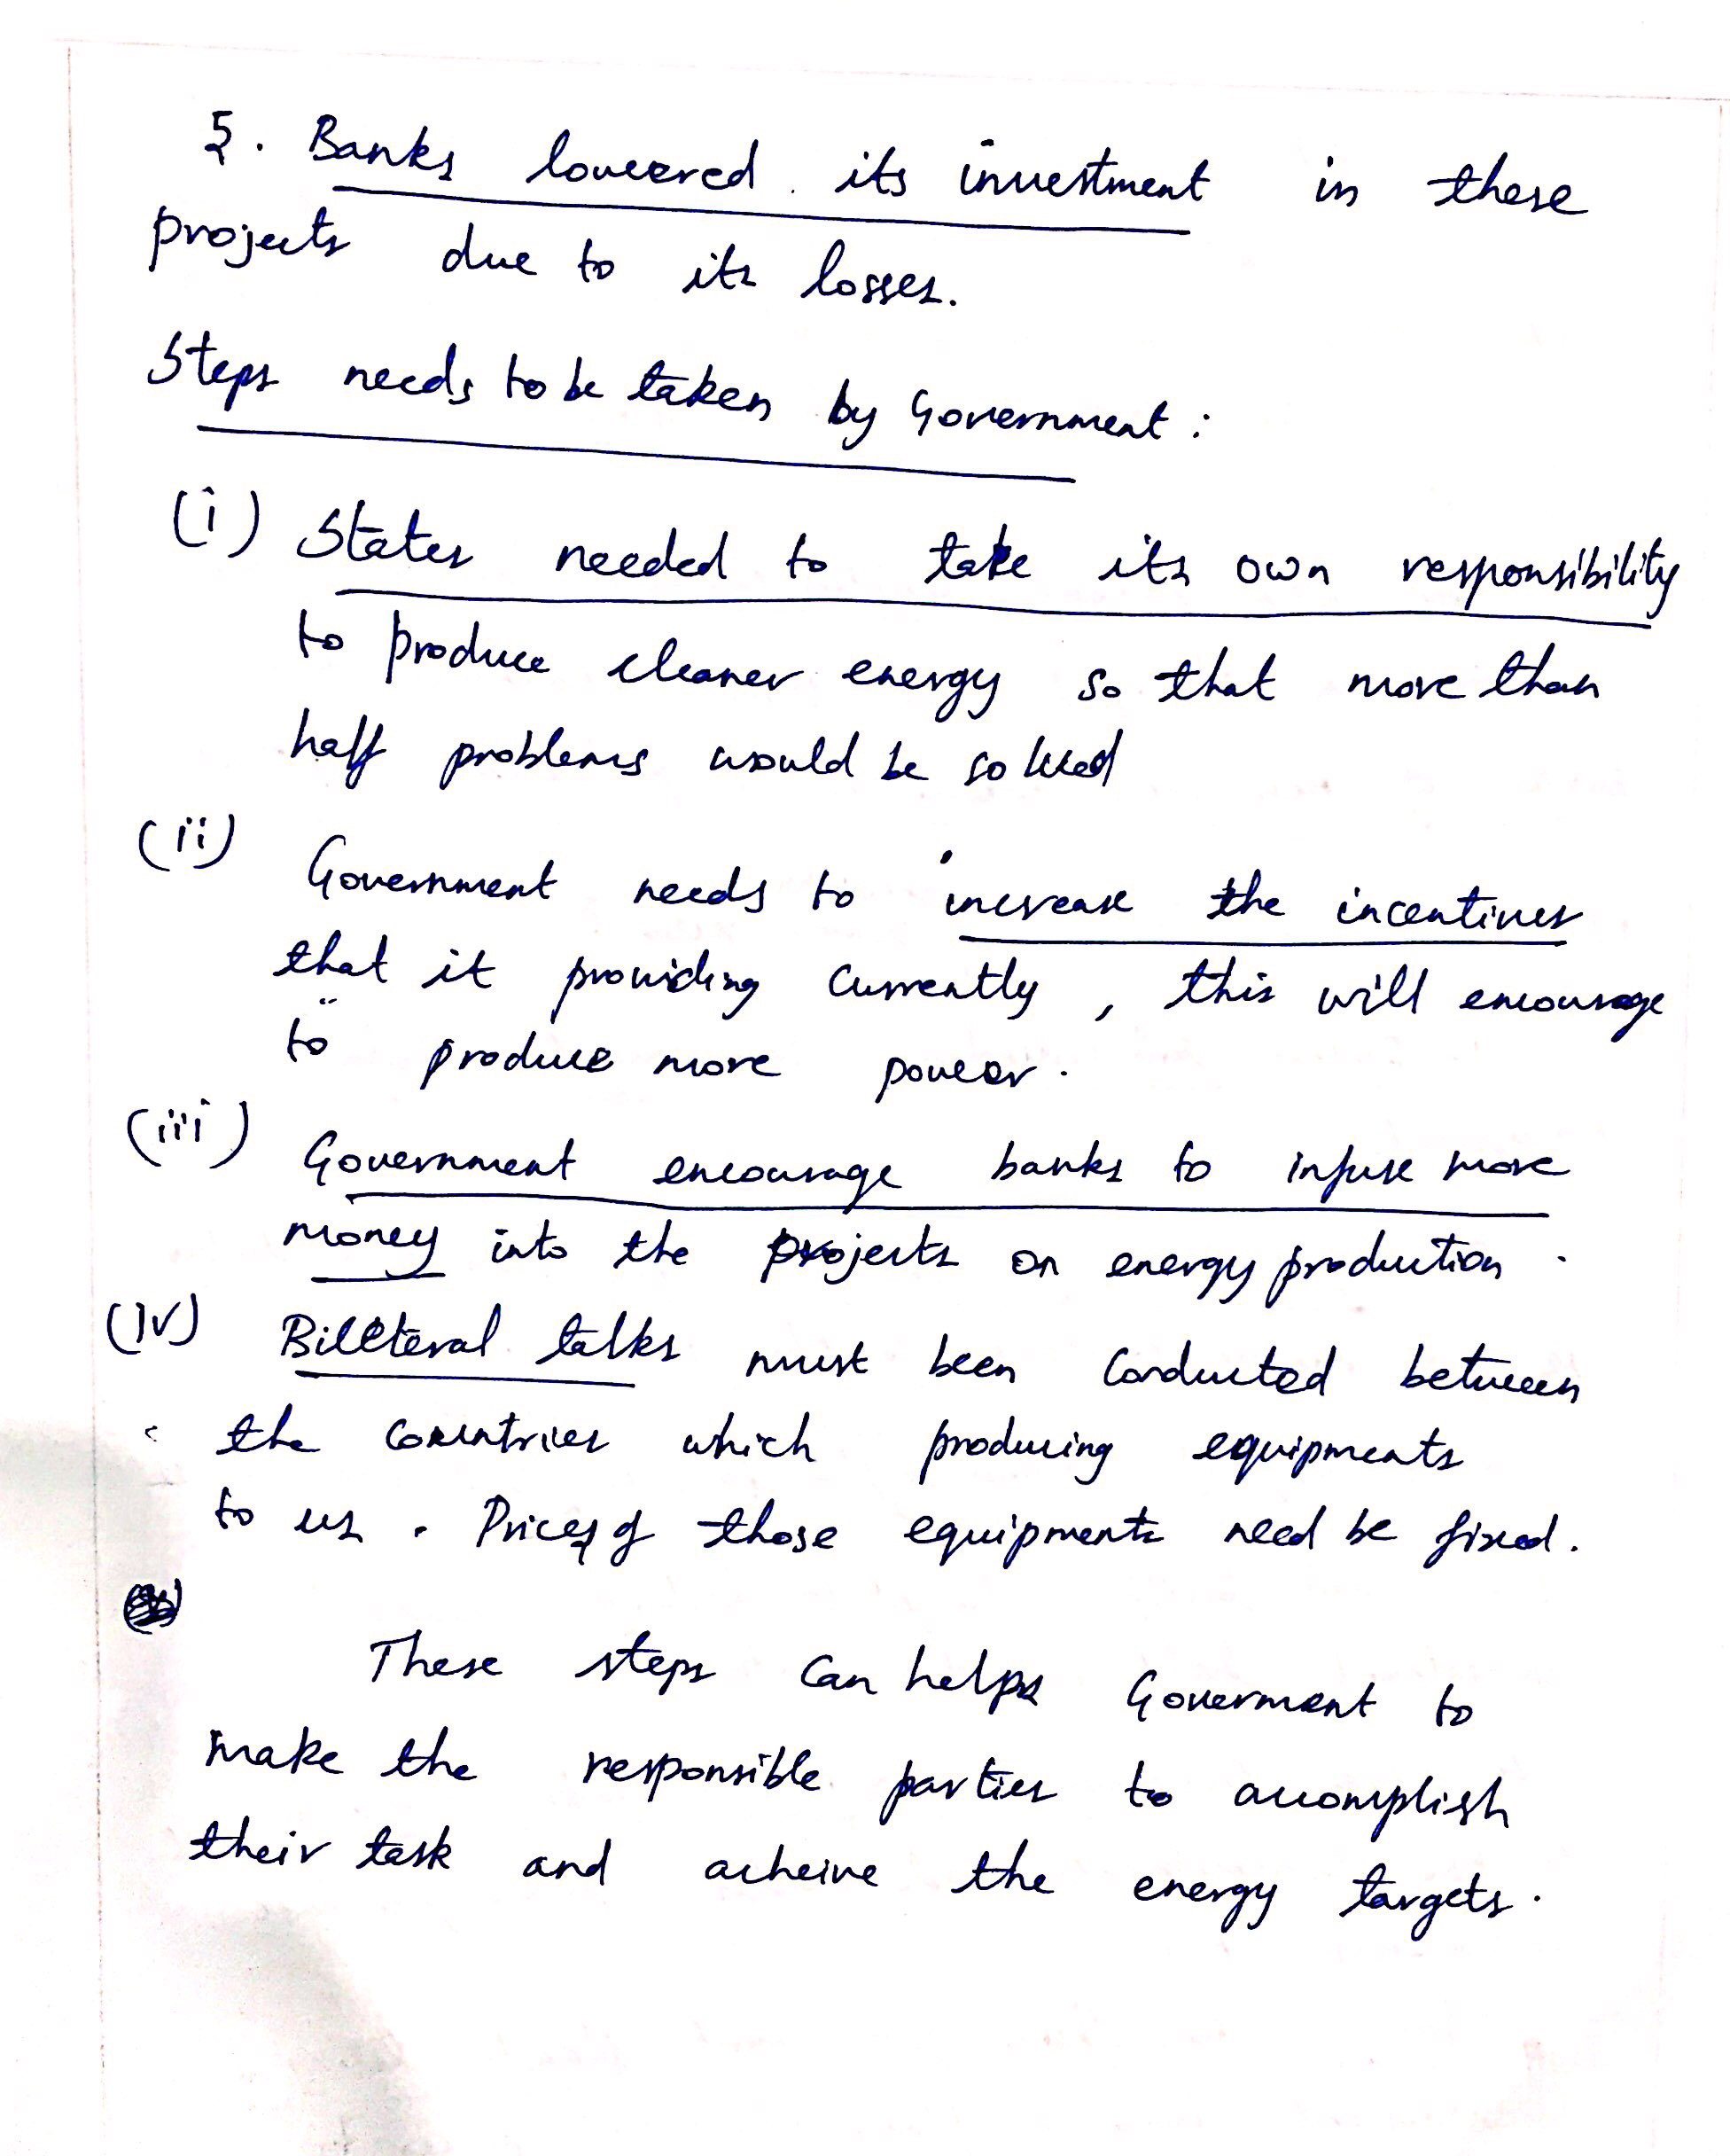 5. Banks lowered its investment in these
projects due to its losses.
Steps needs to be taken by Government :
(i) States needed to take its own responsibility
to produce cleaner energy so that more than
half problems would be solved
(ii) Government needs to increase the incentives
that it providing currently, this will encourage
to produce more power.
(iii) Government encourage banks to infuse more
money into the projects on energy production.
(iv) Bilateral talks must been conducted between
the countries which producing equipments
to us. Prices of those equipments need be fixed.
These steps can helps Goverment to
make the responsible parties to accomplish
their task and acheive the energy targets.